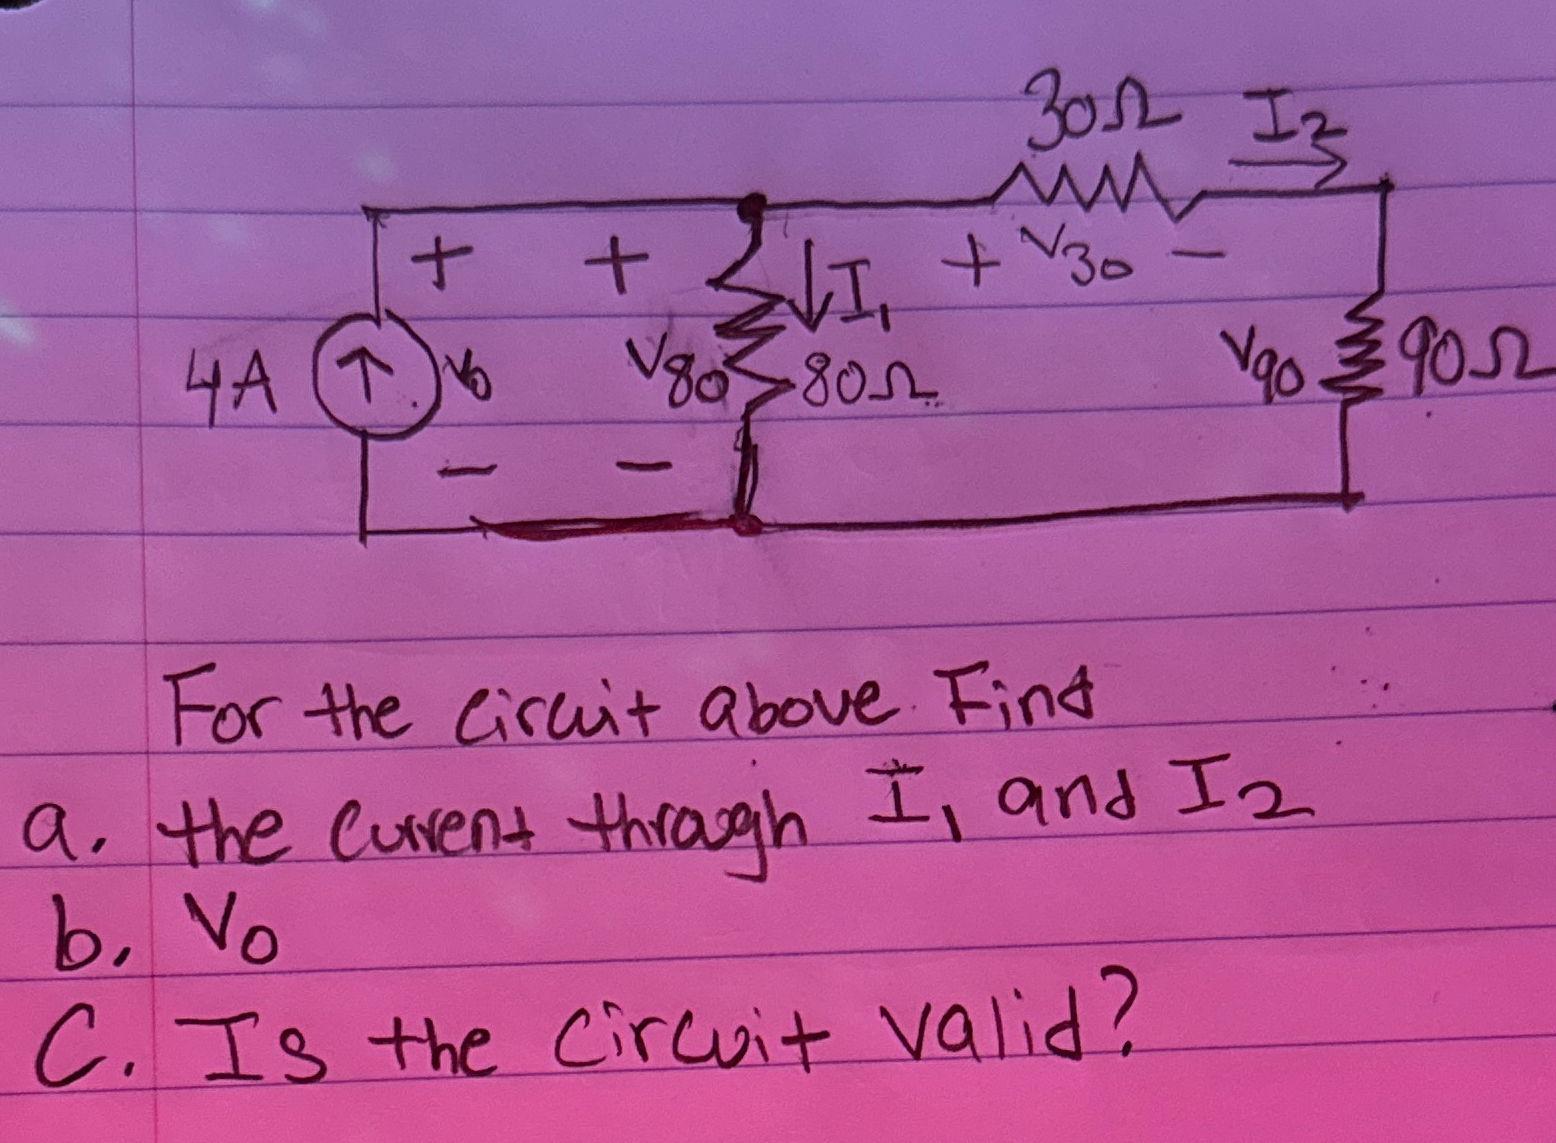 30Ω I2
+ + ↓I1 + V30 -
4A ↑ V0 V80 80Ω V90 90Ω
- -
For the circuit above. Find
a. the current through I1 and I2
b. V0
C. Is the circuit valid?